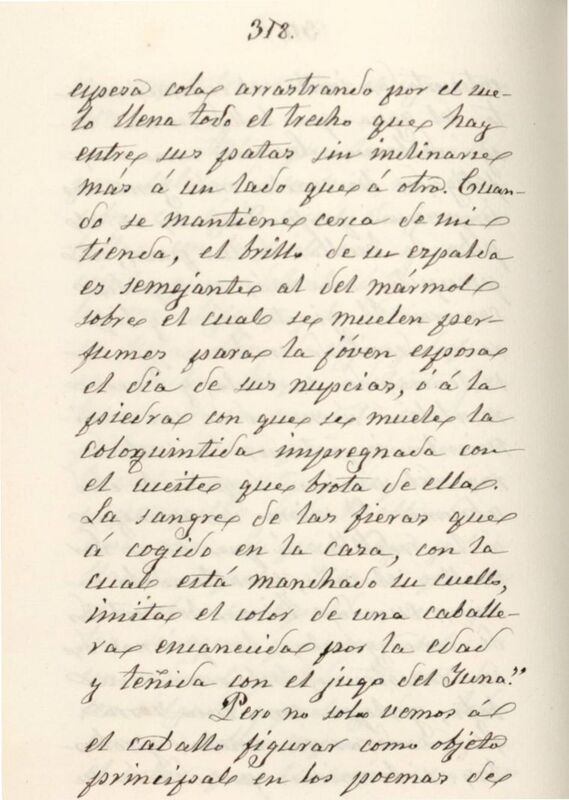 318.
espesa cola arrastrando por el sue-
lo llena todo el trecho que hay
entre sus patas sin inclinarse
más á un lado que á otro. Cuan-
do se mantiene cerca de mi
tienda, el brillo de su espalda
es semejante al del mármol
sobre el cual se muelen per-
fumes para la jóven esposa
el dia de sus nupcias, ó á la
piedra con que se muele la
coloquintida impregnada con
el aceite que brota de ella.
La sangre de las fieras que
á cogido en la caza, con la
cual está manchado su cuello,
imita el color de una caballe-
ra encanecida por la edad
y teñida con el jugo del Juna."
Pero no solo vemos á
el caballo figurar como objeto
principal en los poemas de